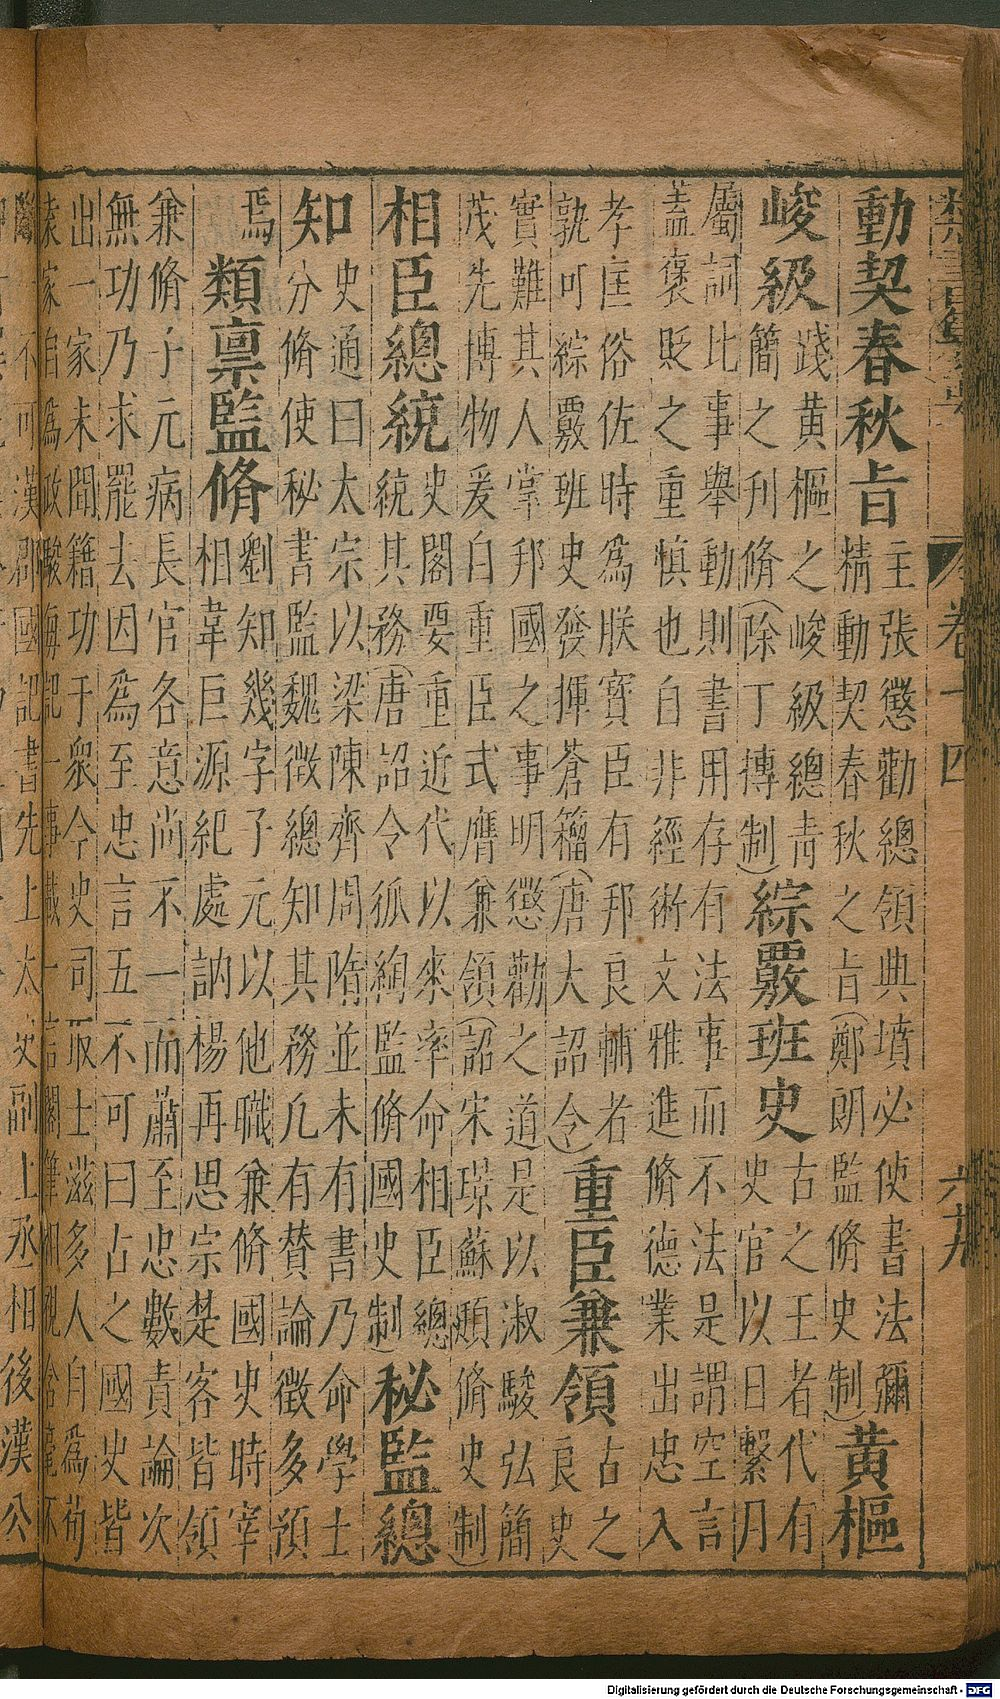 卷十四 六十九
動契春秋旨
主張懲勸總領典墳必使書法彌
精動契春秋之旨(鄭朗監脩史制)
黄樞
峻級
踐黄樞之峻級總青
簡之刋脩(除丁摶制)
綜覈班史
古之王者代有
史官以日繫月
屬詞比事舉動則書用存有法事而不法是謂空言
蓋褒貶之重慎也自非經術文雅進脩德業出忠入
孝匡俗佐時為朕寳臣有邦良輔者
孰可綜覈班史發揮蒼籀(唐大詔令)
重臣兼領
古之
良史
實難其人掌邦國之事明懲勸之道是以淑駿弘簡
茂先博物爰自重臣式膺兼領(詔宋璟蘇頲脩史制)
相臣總統
史閣要重近代以來率命相臣總
統其務(唐詔令狐綯監脩國史制)
秘監總
知
史通曰太宗以梁陳齊周隋並未有書乃命學士
分脩使秘書監魏徵總知其務凡有賛論徵多預
焉
類禀監脩
劉知幾字子元以他職兼脩國史時宰
相韋巨源紀處訥楊再思宗楚客皆領
兼脩子元病長官各意尚不一而蕭至忠數責論次
無功乃求罷去因為至忠言五不可曰古之國史皆
出一家未聞籍功于衆今史司取士滋多人自為荀
袁家自為政駿每記一事載一言閣筆相視含毫不
不可漢郡國記書先上太史副上丞相後漢公
Digitalisierung gefördert durch die Deutsche Forschungsgemeinschaft - DFG